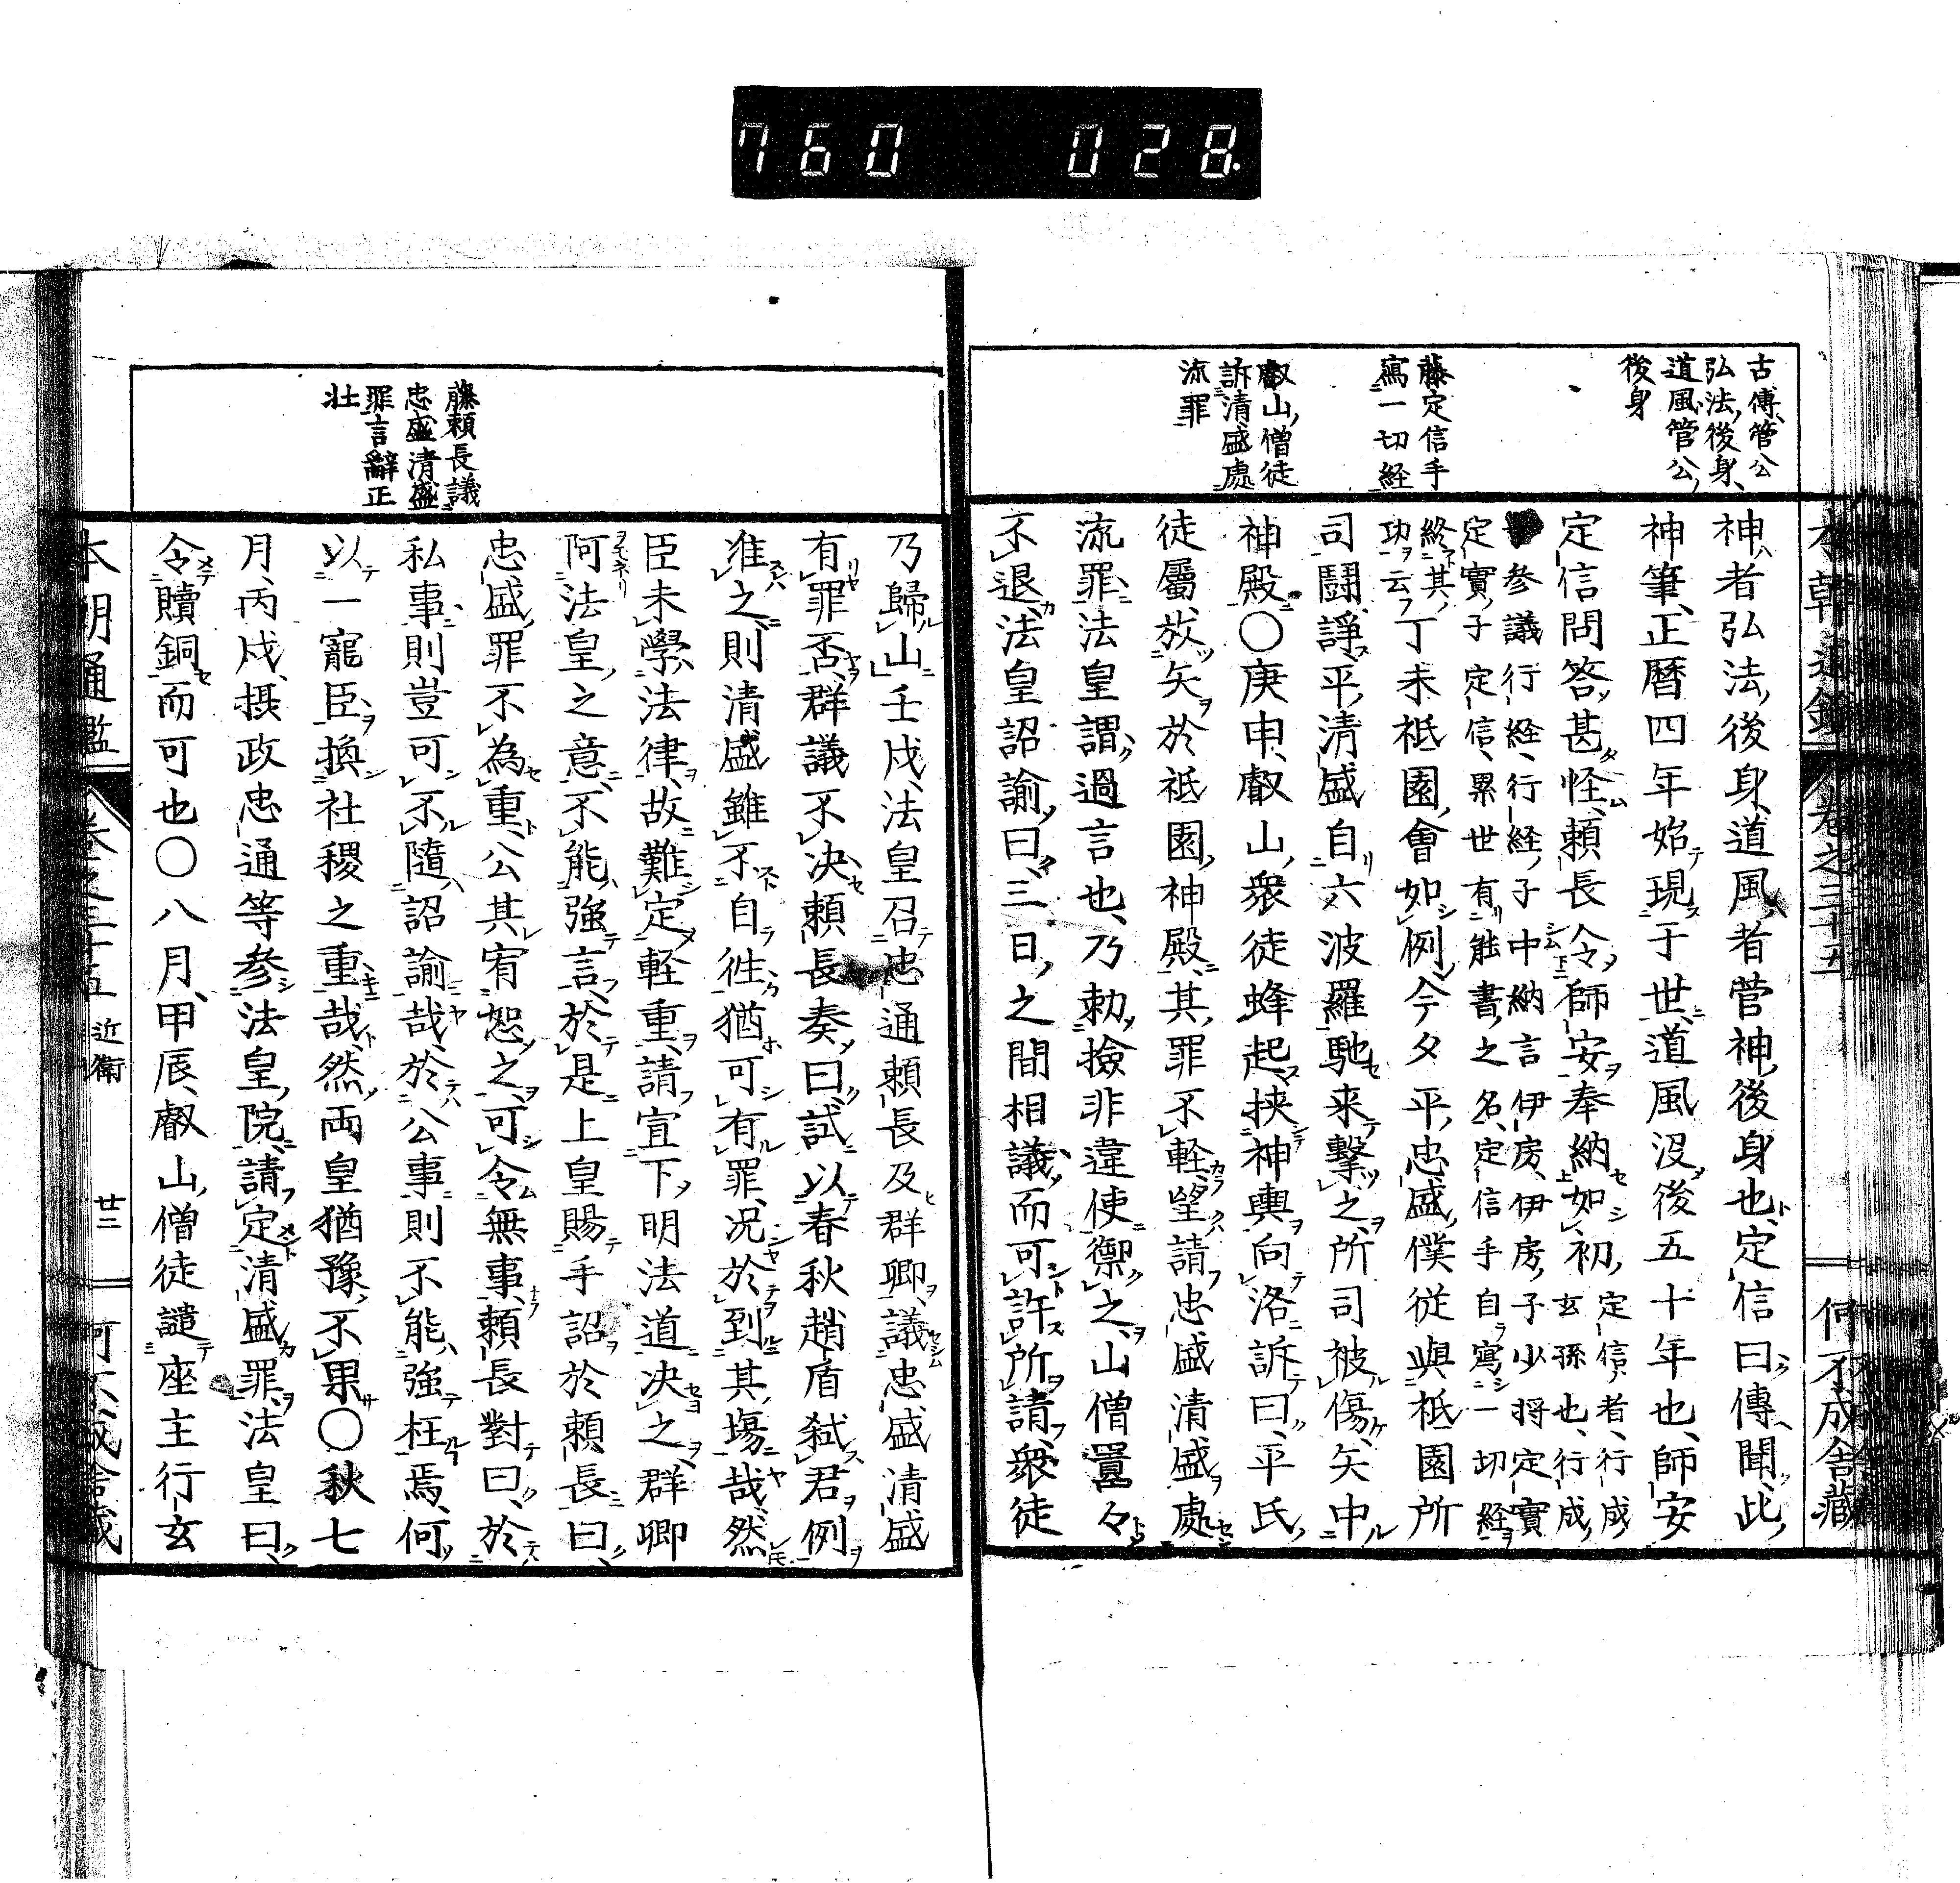 760 028
古傳管公
弘法後身
道風管公
後身
藤定信手
寫一切経
叡山僧徒
訴清盛處
流罪
神者弘法後身道風者菅神後身也定信曰傳聞此
神筆正暦四年始現于世道風没後五十年也師安
定信問答甚怪頼長令師安奉納如初定信者行成
玄孫也行成
参議行経行経子中納言伊房伊房子少将定實
定實子定信累世有能書之名定信手自寫一切経
終其
功云丁未祗園會如例今夕平忠盛僕従與祗園所
司鬪諍平清盛自六波羅馳来撃之所司被傷矢中
神殿〇庚申叡山衆徒蜂起挟神輿向洛訴曰平氏
徒屬放矢於祗園神殿其罪不軽望請忠盛清盛處
流罪法皇謂過言也乃勅撿非違使禦之山僧囂々
不退法皇詔諭曰三日之間相議而可許所請衆徒
本朝通鑑 卷之三十五 何不成舎藏
藤頼長議
忠盛清盛
罪言辭正
壮
乃歸山壬戌法皇召忠通頼長及群卿議忠盛清盛
有罪否群議不决頼長奏曰試以春秋趙盾弑君例
准之則清盛雖不自徃猶可有罪况於到其塲哉然
臣未學法律故難定軽重請宣下明法道决之群卿
阿法皇之意不能強言於是上皇賜手詔於頼長曰
忠盛罪不為重公其宥恕之可令無事頼長對曰於
私事則豈可不隨詔諭哉於公事則不能強枉焉何
以一寵臣換社稷之重哉然両皇猶豫不果〇秋七
月丙戌摂政忠通等参法皇院請定清盛罪法皇曰
令贖銅而可也〇八月甲辰叡山僧徒譴座主行玄
本朝通鑑 卷之三十五 近衛 廿二